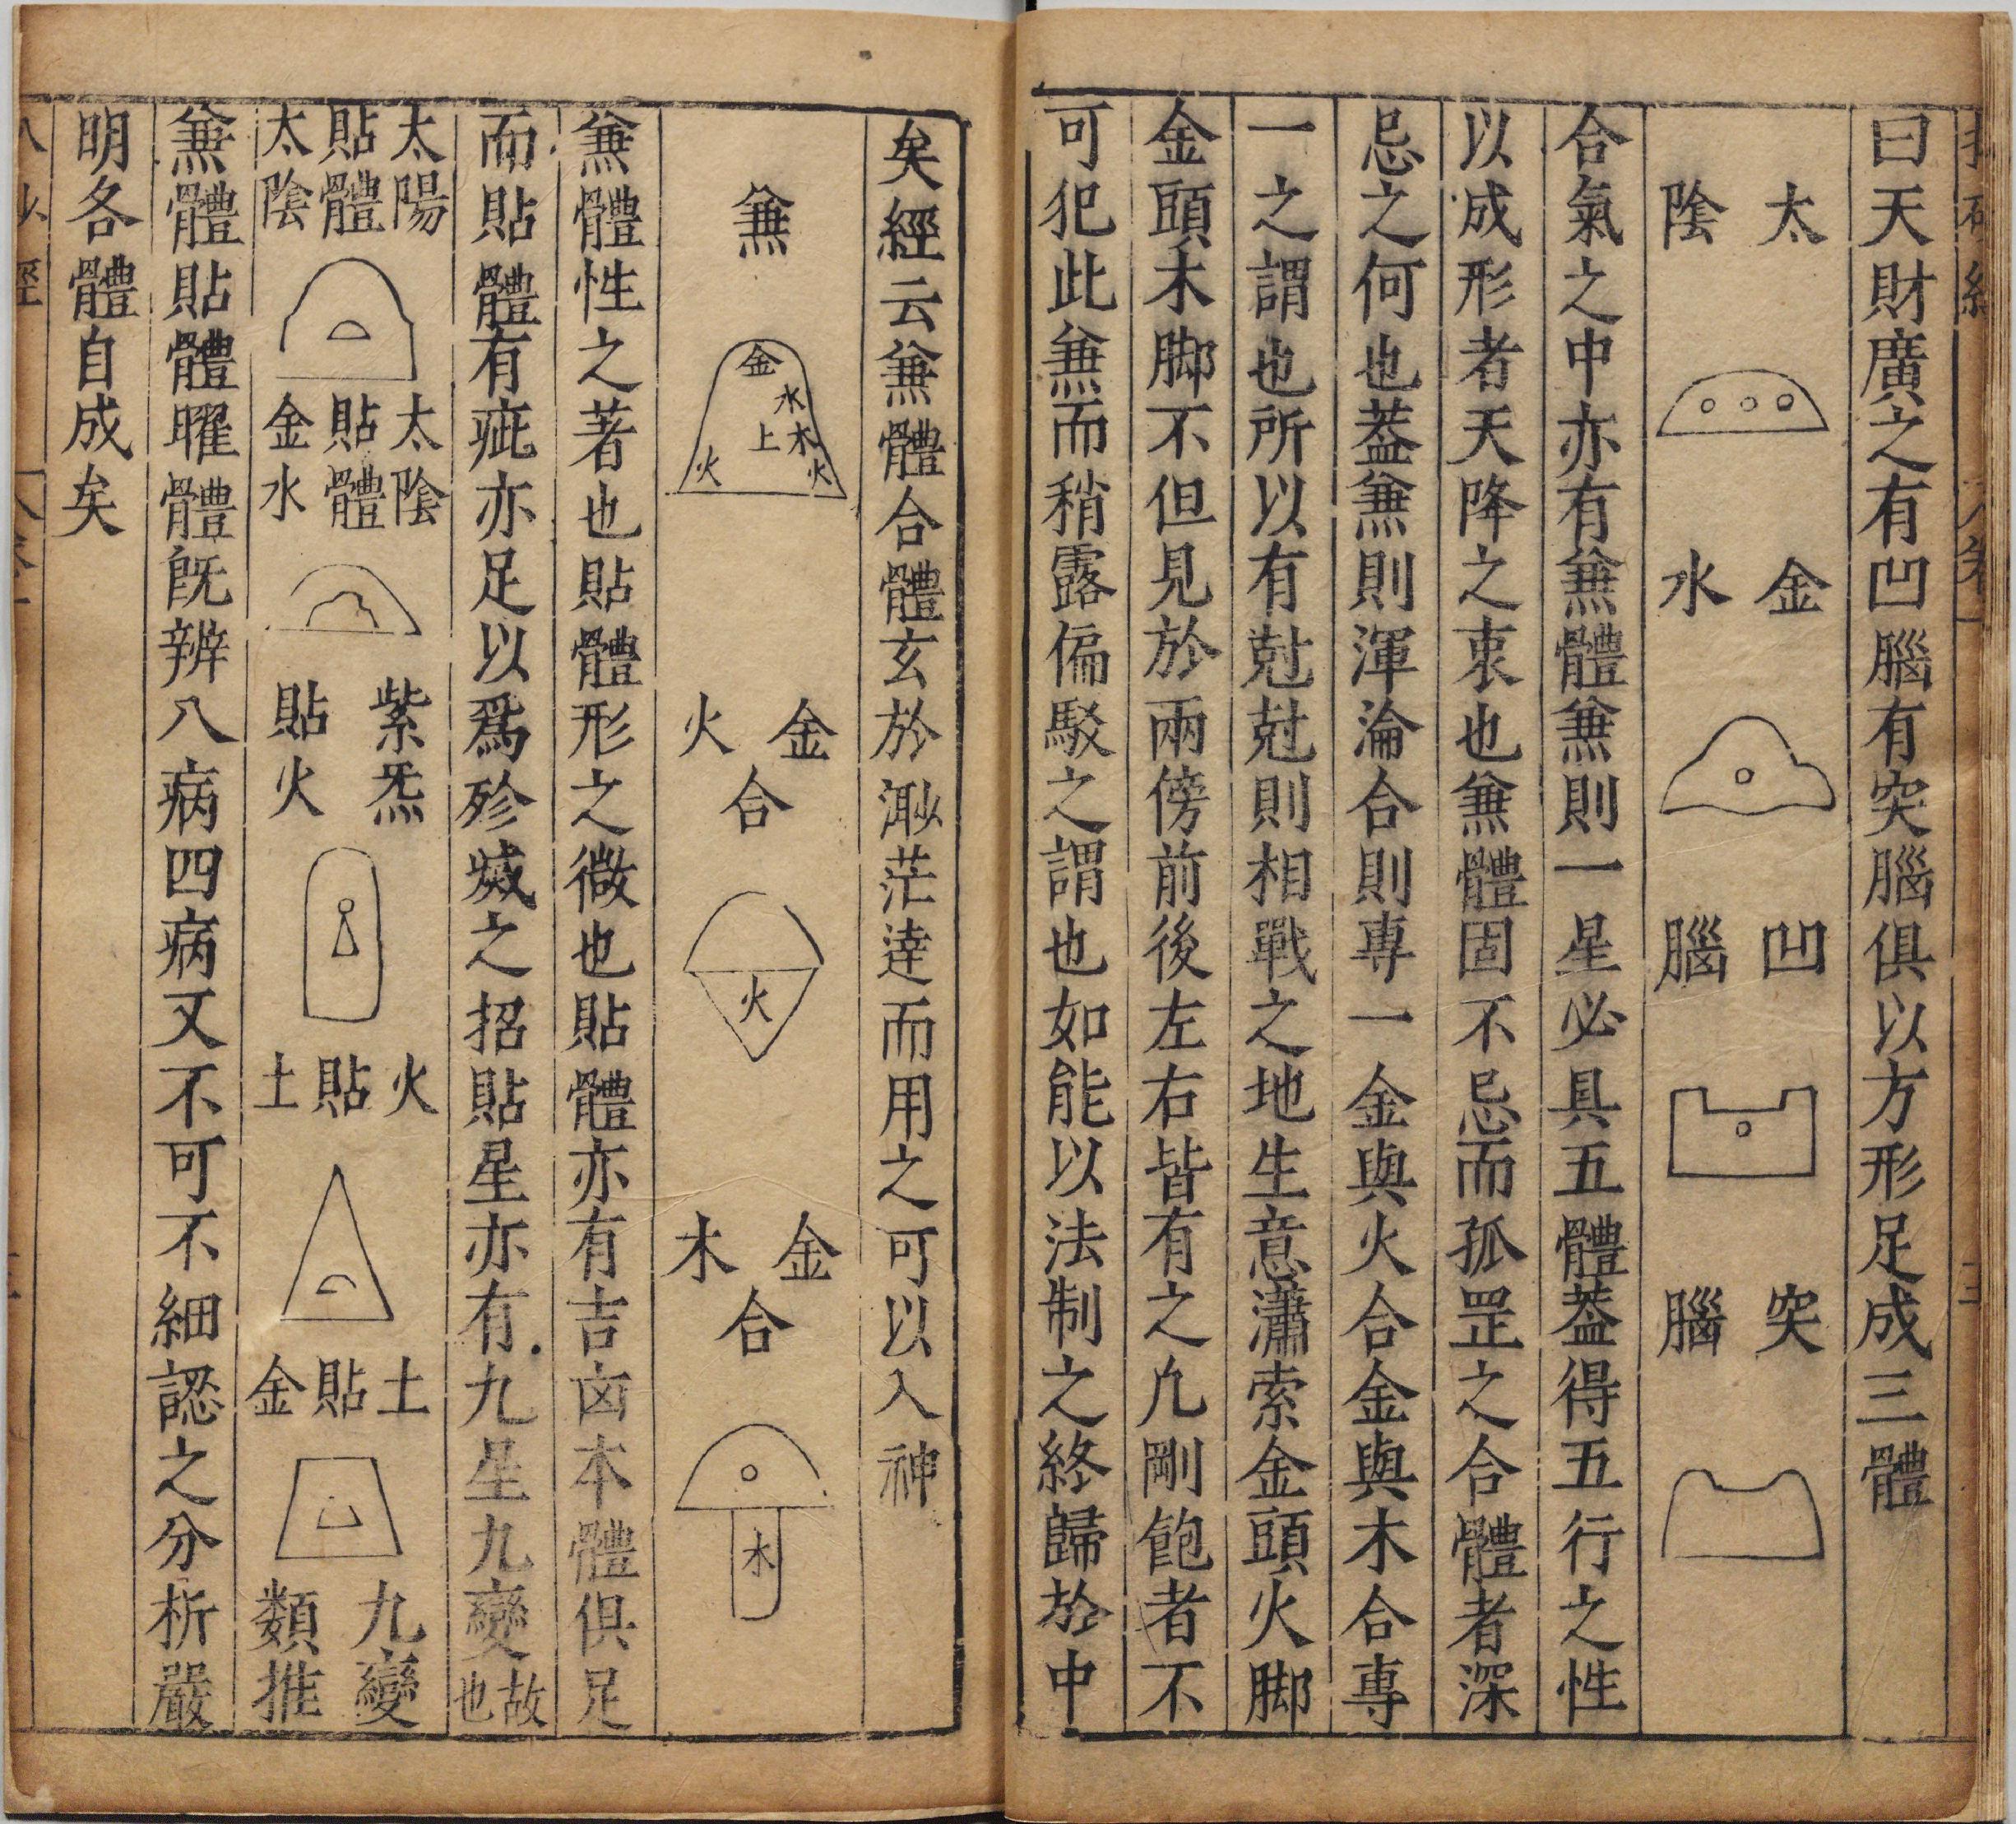 曰天財廣之有凹腦有突腦俱以方形足成三體
太陰
金水
凹腦
突腦
合氣之中亦有兼體兼則一星必具五體葢得五行之性
以成形者天降之衷也兼體固不忌而孤罡之合體者深
忌之何也葢兼則渾淪合則專一金與火合金與木合專
一之謂也所以有尅尅則相戰之地生意瀟索金頭火脚
金頭木脚不但見於兩傍前後左右皆有之凢剛飽者不
可犯此兼而稍露偏駁之謂也如能以法制之終歸於中
矣經云兼體合體玄於渺茫達而用之可以入神
兼
金
水
木
火
上
火
金火合
火
金木合
木
兼體性之著也貼體形之微也貼體亦有吉凶本體俱足
而貼體有疵亦足以爲殄滅之招貼星亦有九星九變故也
太陽貼體太陰
太陰貼體金水
紫炁貼火
火貼土
土貼金
九變類推
兼體貼體曜體旣辨八病四病又不可不細認之分析嚴
明各體自成矣